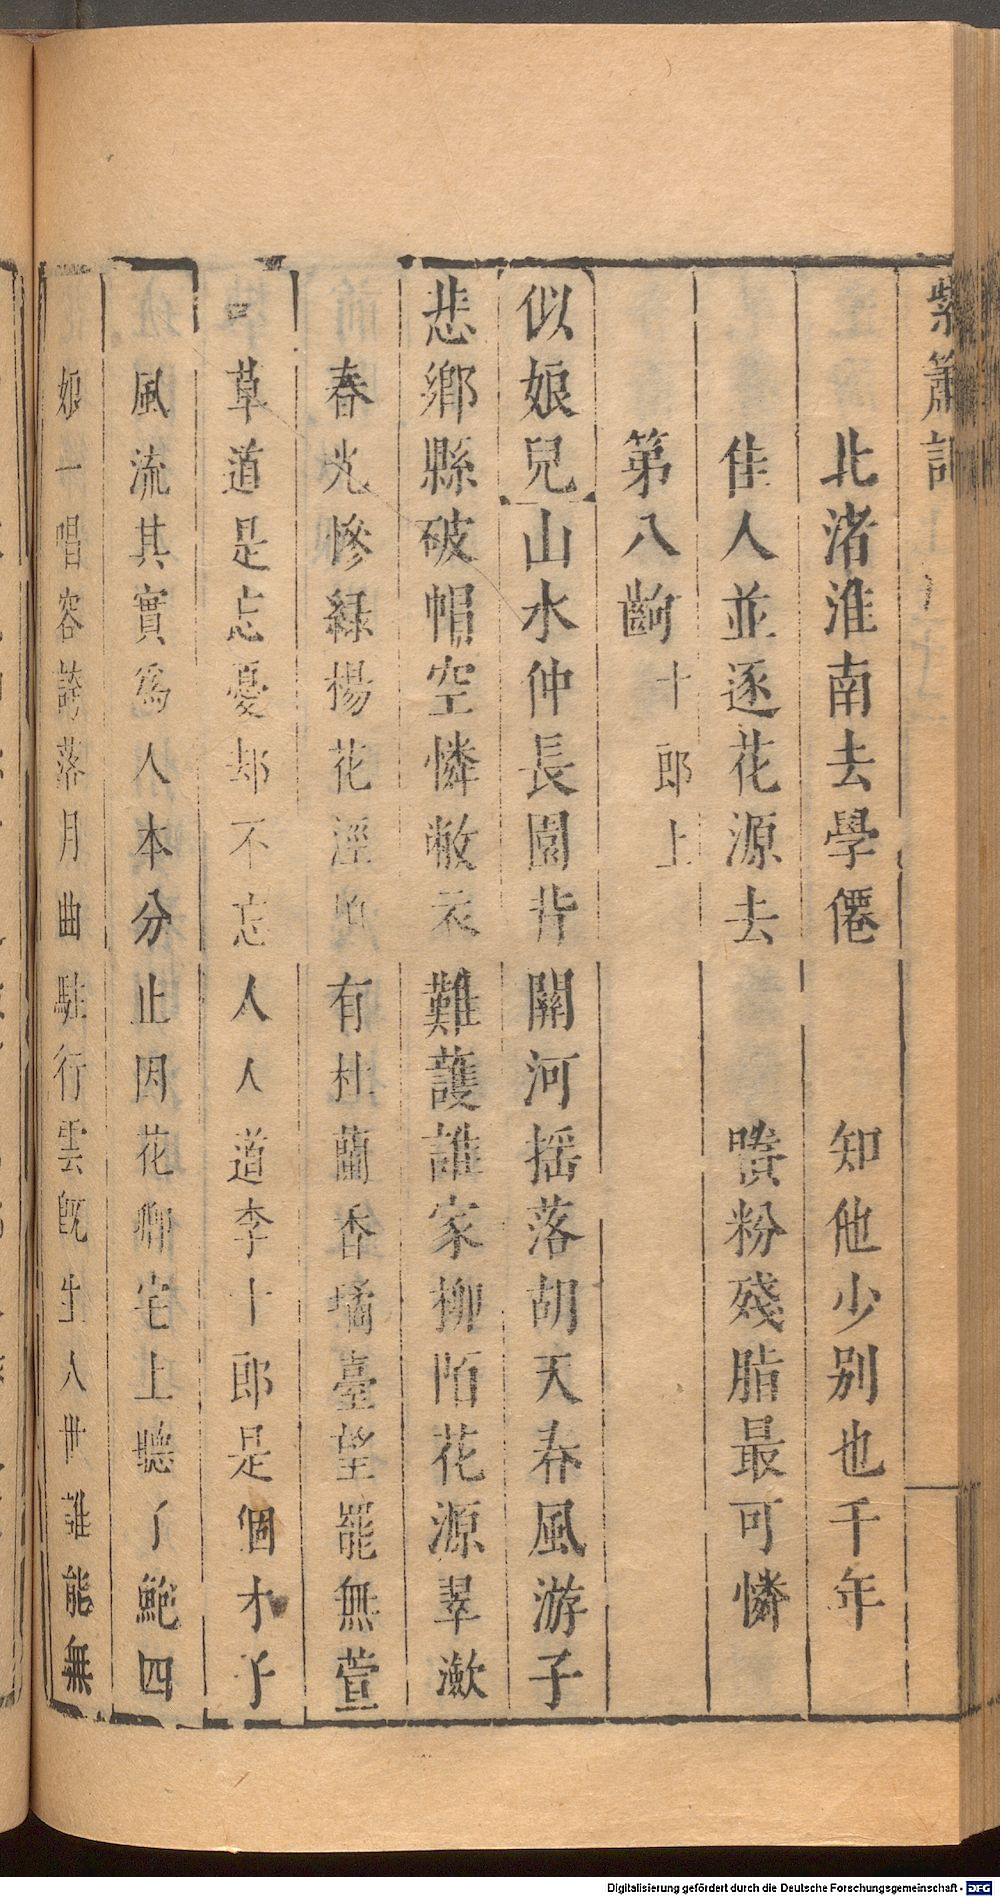 紫簫記
北渚淮南去學僊　知他少別也千年
佳人並逐花源去　賸粉殘脂最可憐
第八齣　十郎上
似娘兒　山水仲長園背關河搖落胡天春風游子
悲鄉縣破帽空憐敝衣難護誰家柳陌花源翠瀲
春光慘綠楊花涇有杜蘭香墧臺望罷無萱
草道是忘憂却不忘人人道李十郎是個才子
風流其實爲人本分止因花卿宅上聽了鮑四
娘一唱容誇落月曲駐行雲旣生人世誰能無
Digitalisierung gefördert durch die Deutsche Forschungsgemeinschaft - DFG